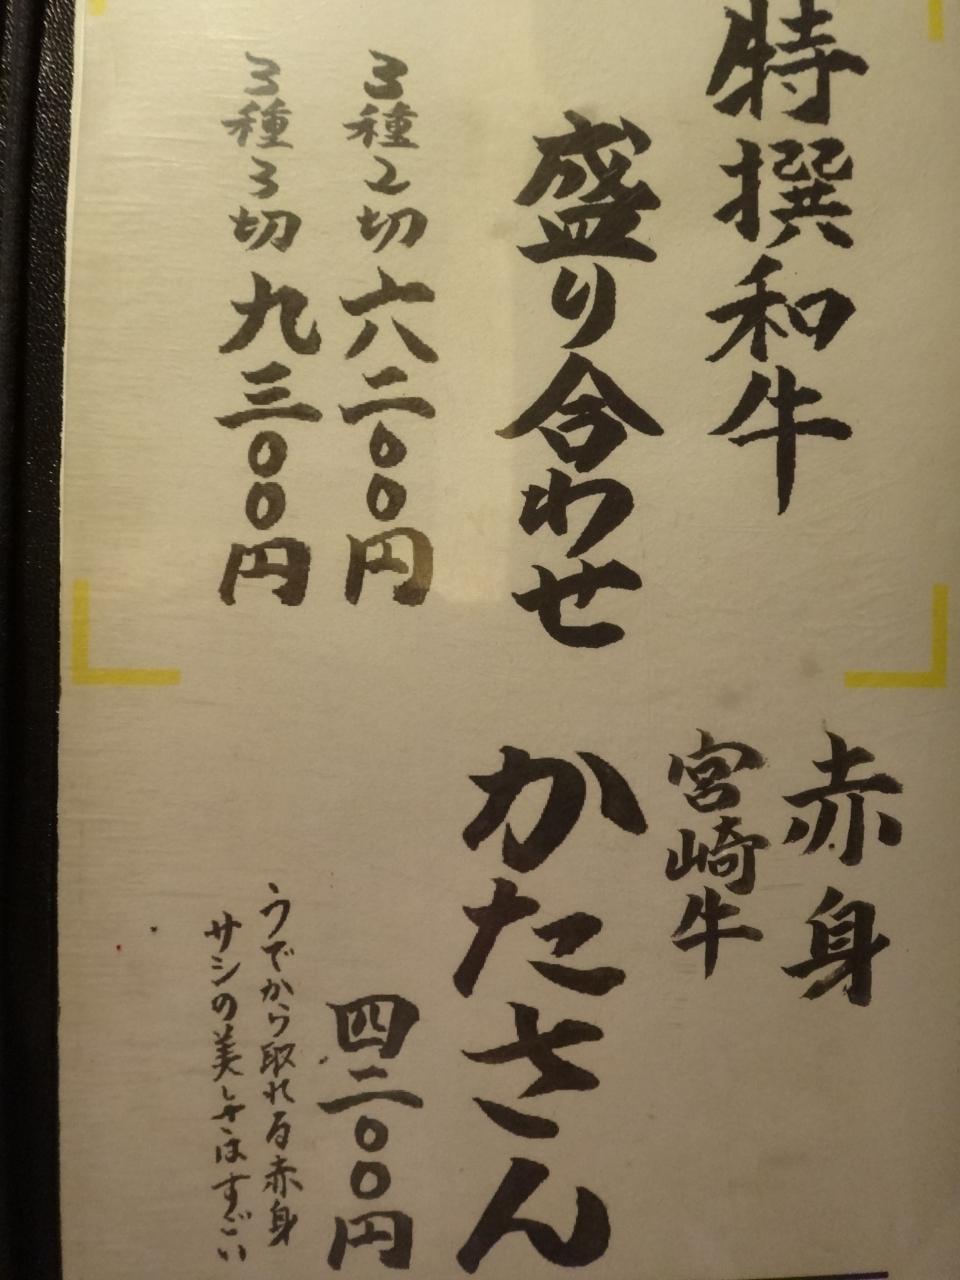 特撰和牛
盛り合わせ
3種2切 六二00円
3種3切 九三00円
赤身
宮崎牛
かたさん
四二00円
うでから取れる赤身
サシの美しさはすごい